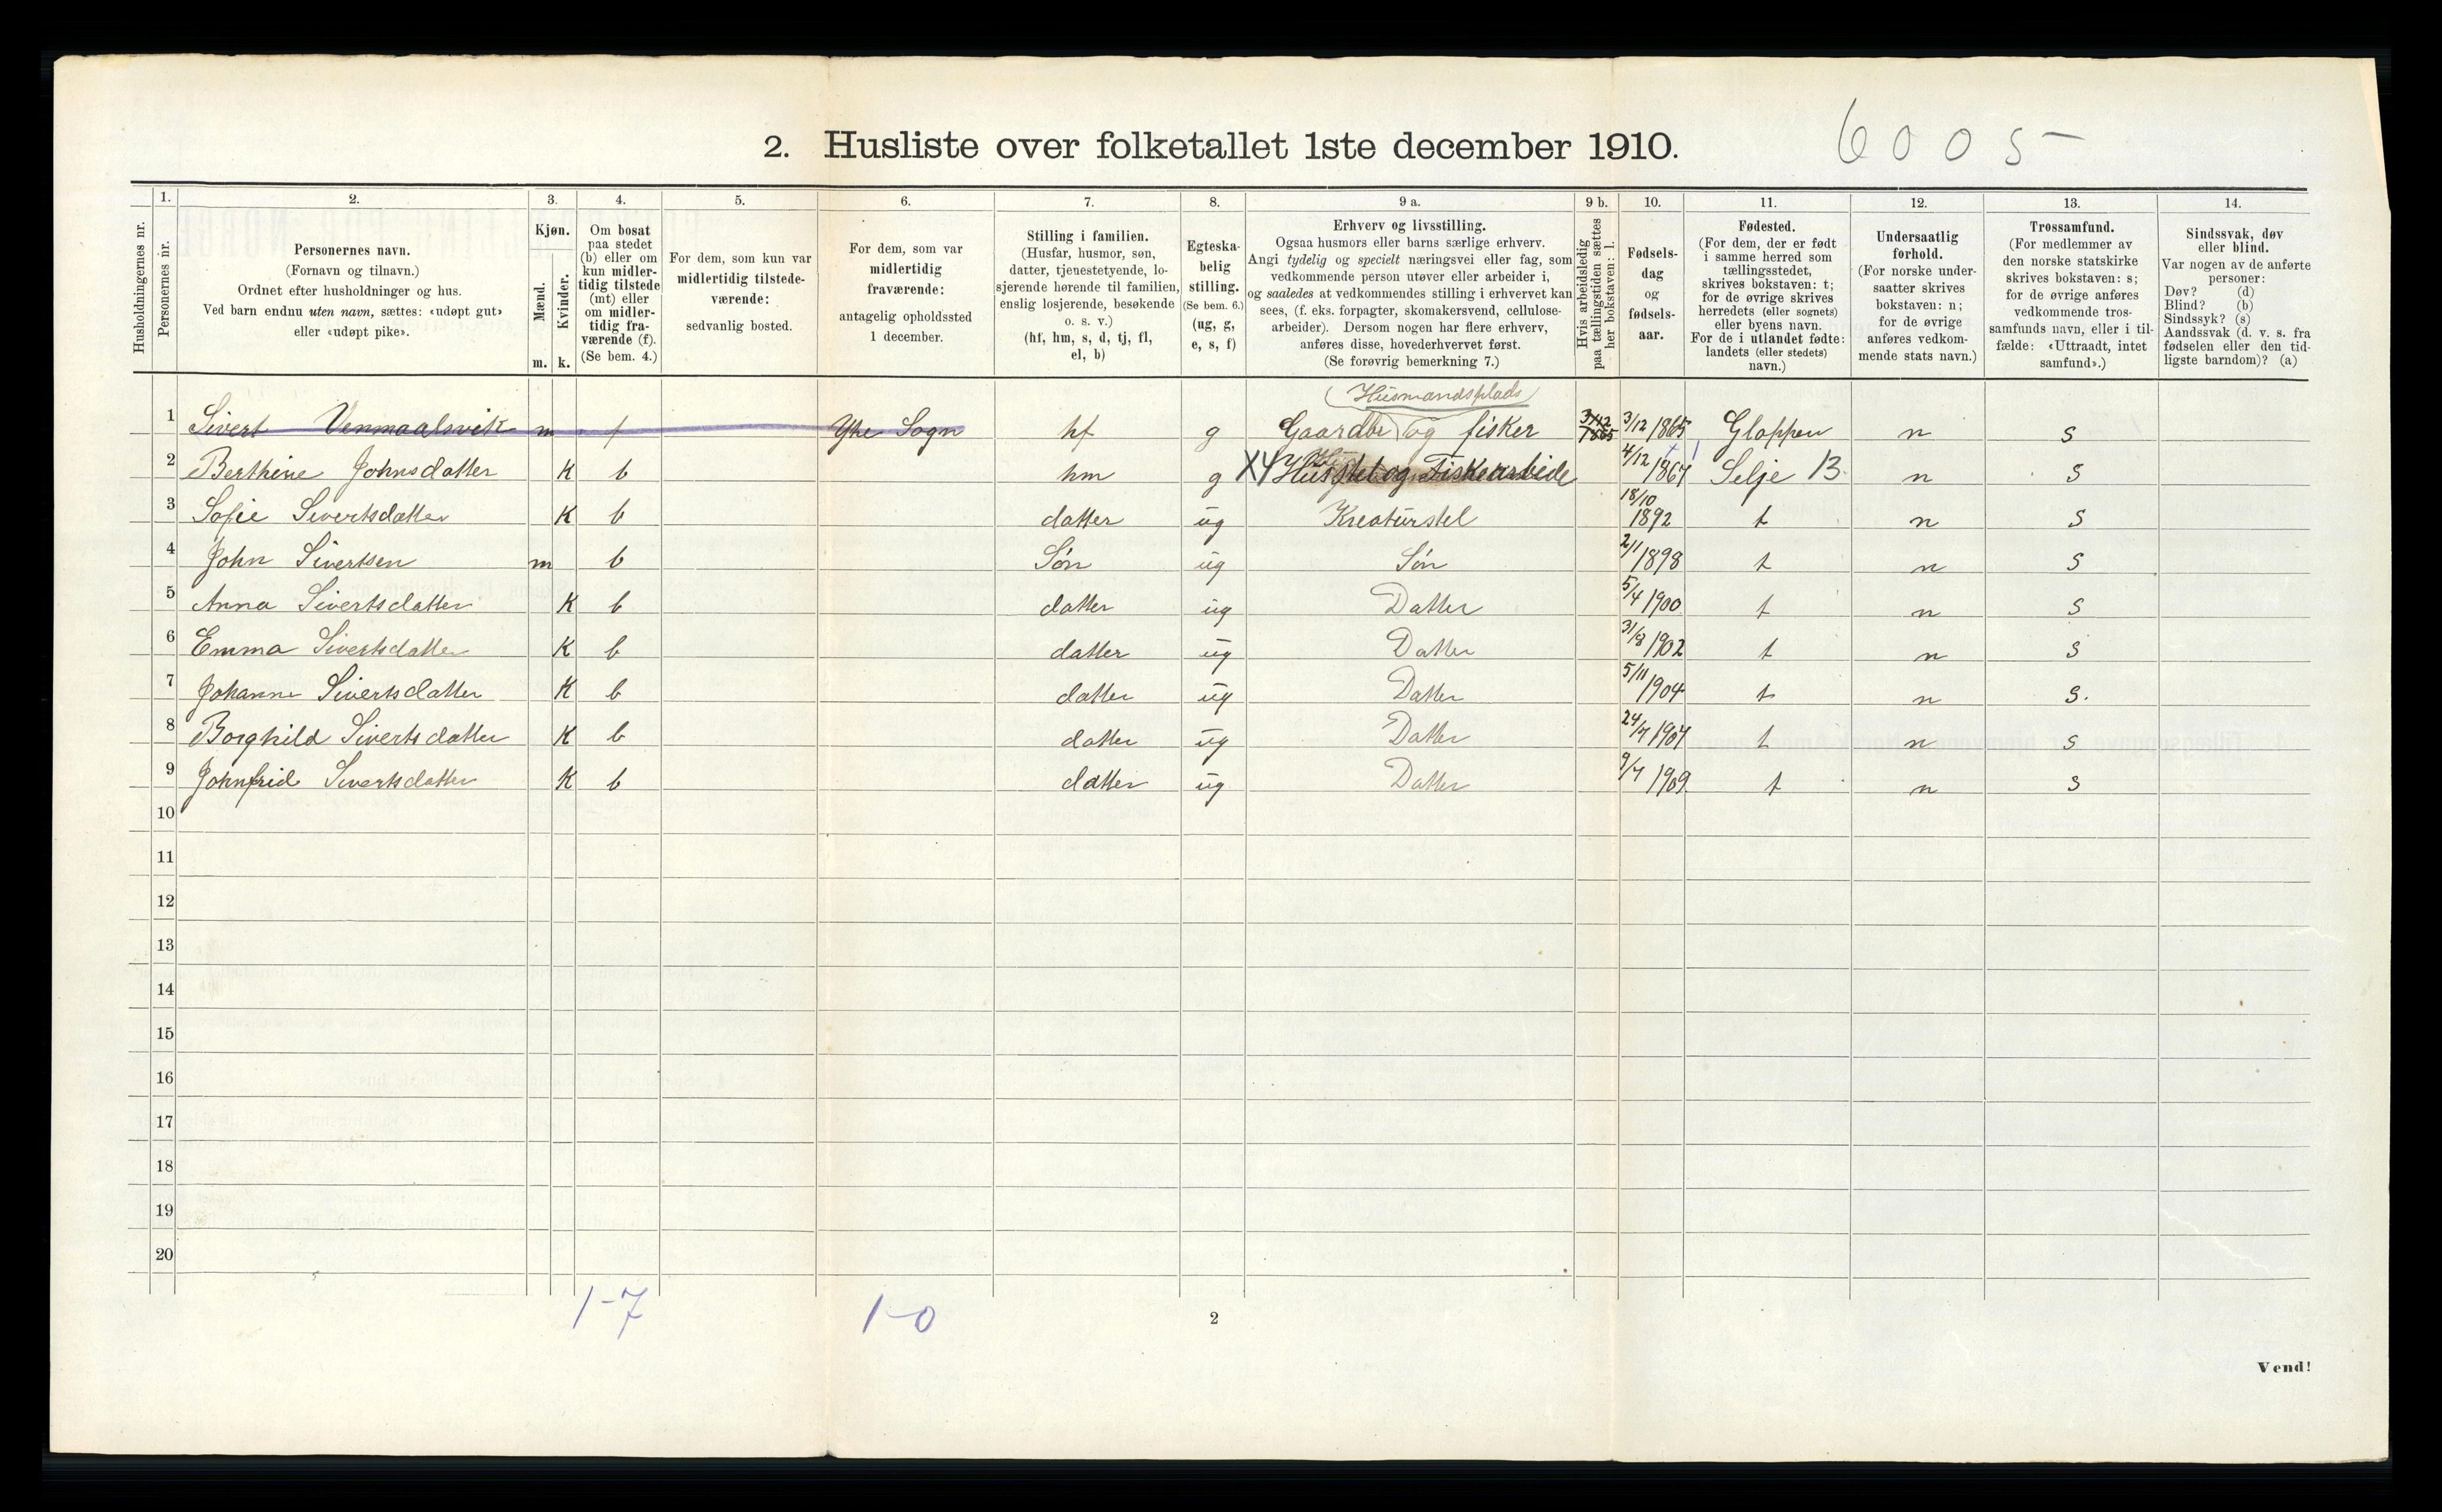 2. Husliste over folketallet 1ste december 1910.
6005-
Husholdningernes nr.
1.
Personernes nr.
2.
Personernes navn.
(Fornavn og tilnavn.)
Ordnet efter husholdninger og hus.
Ved barn endnu uten navn, sættes: «udøpt gut»
eller «udøpt pike».
3.
Kjøn.
Mænd.
Kvinder.
m. k.
4.
Om bosat
paa stedet
(b) eller om
kun midler-
tidig tilstede
(mt) eller
om midler-
tidig fra-
værende (f).
(Se bem. 4.)
5.
For dem, som kun var
midlertidig tilstede-
værende:
sedvanlig bosted.
6.
For dem, som var
midlertidig
fraværende:
antagelig opholdssted
1 december.
7.
Stilling i familien.
(Husfar, husmor, søn,
datter, tjenestetyende, lo-
sjerende hørende til familien,
enslig losjerende, besøkende
o. s. v.)
(hf, hm, s, d, tj, fl,
el, b)
8.
Egteska-
belig
stilling.
(Se bem. 6.)
(ug, g,
e, s, f)
9 a.
Erhverv og livsstilling.
Ogsaa husmors eller barns særlige erhverv.
Angi tydelig og specielt næringsvei eller fag, som
vedkommende person utøver eller arbeider i,
og saaledes at vedkommendes stilling i erhvervet kan
sees, (f. eks. forpagter, skomakersvend, cellulose-
arbeider). Dersom nogen har flere erhverv,
anføres disse, hovederhvervet først.
(Se forøvrig bemerkning 7.)
9 b.
Hvis arbeidsledig
paa tællingstiden sættes
her bokstaven: l.
10.
Fødsels-
dag
og
fødsels-
aar.
11.
Fødested.
(For dem, der er født
i samme herred som
tællingsstedet,
skrives bokstaven: t;
for de øvrige skrives
herredets (eller sognets)
eller byens navn.
For de i utlandet fødte:
landets (eller stedets)
navn.)
12.
Undersaatlig
forhold.
(For norske under-
saatter skrives
bokstaven: n;
for de øvrige
anføres vedkom-
mende stats navn.)
13.
Trossamfund.
(For medlemmer av
den norske statskirke
skrives bokstaven: s;
for de øvrige anføres
vedkommende tros-
samfunds navn, eller i til-
fælde: «Uttraadt, intet
samfund».)
14.
Sindssvak, døv
eller blind.
Var nogen av de anførte
personer:
Døv? (d)
Blind? (b)
Sindssyk? (s)
Aandssvak (d. v. s. fra
fødselen eller den tid-
ligste barndom)? (a)
(Husmandsplads)
1 Sivert Venmaalsvik m f Ytre Sogn hf g Gaardbr og fisker 3/12 1865 3/12 1865 Gloppen n s
2 Berthine Johnsdatter K b hm g X4 Husstel og Fiskearbeide 4/12 1867 Selje 13 n s
3 Sofie Sivertsdatter K b datter ug Kreaturstel 18/10 1892 t n s
4 John Sivertsen m b Søn ug Søn 2/1 1898 t n s
5 Anna Sivertsdatter K b datter ug Datter 5/4 1900 t n s
6 Emma Sivertsdatter K b datter ug Datter 31/8 1902 t n s
7 Johanne Sivertsdatter K b datter ug Datter 5/11 1904 t n s.
8 Borghild Sivertsdatter K b datter ug Datter 24/7 1907 t n s
9 Johnfrid Sivertsdatter K b datter ug Datter 9/7 1909 t n s
10
11
12
13
14
15
16
17
18
19
20
1-7 1-0
2
Vend!